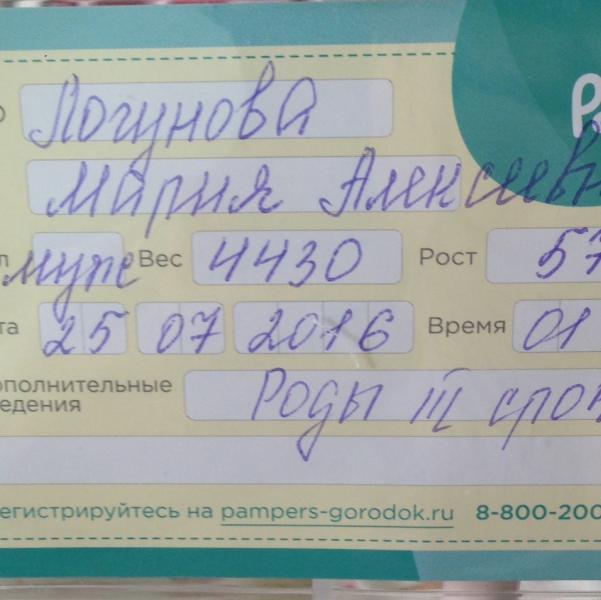 Логунова
Мария Алексеевн
муж Вес 4430 Рост 57
та 25 07 2016 Время 01
ополнительные
едения Роды III срочн
егистрируйтесь на pampers-gorodok.ru 8-800-200